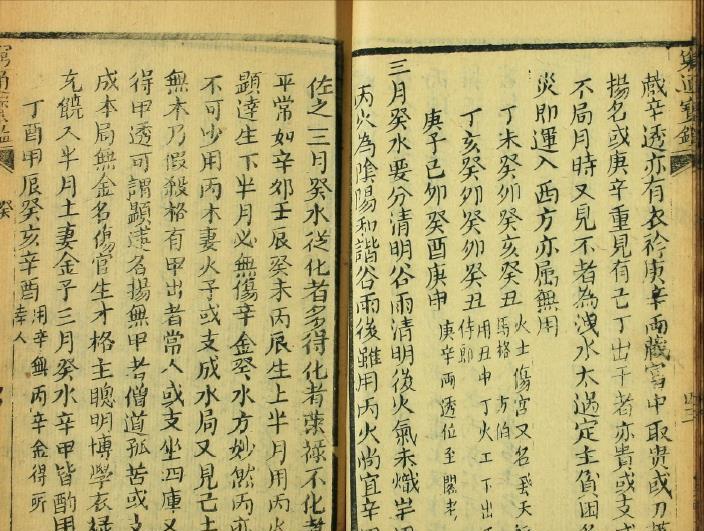 窮通寶鑑
藏辛透亦有衣衿庚辛兩藏富中取貴或刀
揚名或庚辛重見有己丁出干者亦貴或支
不局月時又見不者為洩水太過定主貧困
災即運入西方亦屬無用
丁未癸卯癸亥癸丑 火土傷官又名
馬格 方伯
丁亥癸卯癸卯癸丑 用丑中丁火工下出
侍郎
庚子己卯癸酉庚申 庚辛兩透位至閣老
三月癸水要分清明谷雨清明後火氣未熾
丙火為陰陽和諧谷雨後雖用丙火尚宜辛
佐之三月癸水從化者多得化者荣祿不化者
平常如辛卯壬辰癸未丙辰生上半月用丙火
顯達生下半月必無傷辛金癸水方妙然丙
不可少用丙木妻火子或支成水局又見己土
無木乃假殺格有甲出者常人或支坐四庫又
得甲透可謂顯達名揚無甲者僧道孤苦或支
成木局無金名傷官生才格主聰明博學衣祿
充饒又半月土妻金子三月癸水辛甲皆酌用
丁酉甲辰癸亥辛酉 用辛無丙辛金得所
孝人
窮通寶鑑
癸